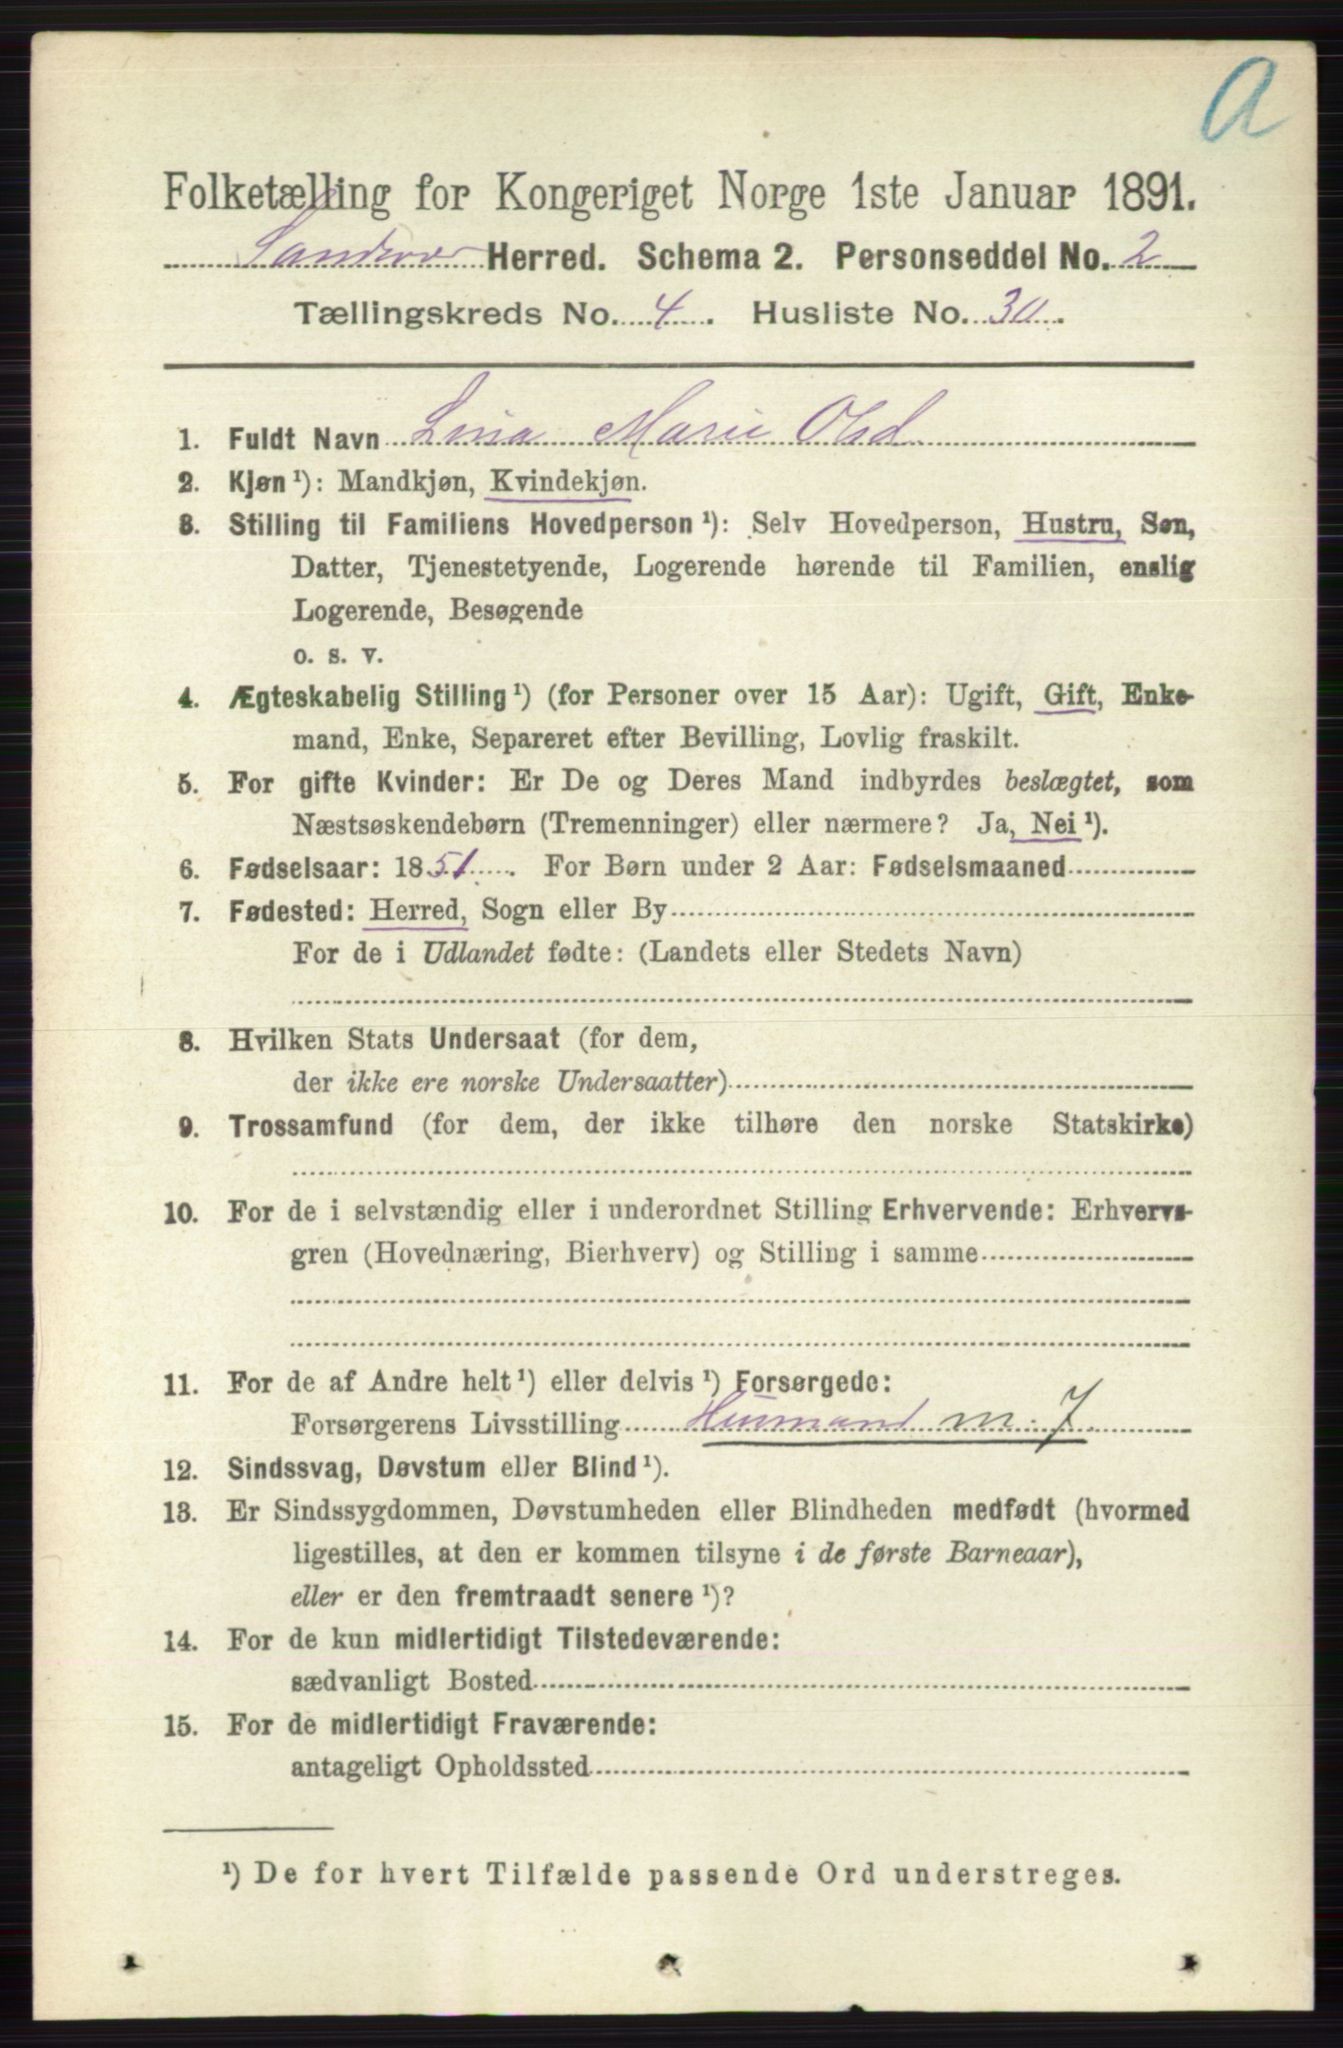 A
Folketælling for Kongeriget Norge 1ste Januar 1891.
Sandsvær Herred. Schema 2. Personseddel No. 2
Tællingskreds No. 4. Husliste No. 30.
1. Fuldt Navn Lina Marie Olsd
2. Kjøn ¹): Mandkjøn, Kvindekjøn.
3. Stilling til Familiens Hovedperson ¹): Selv Hovedperson, Hustru, Søn,
Datter, Tjenestetyende, Logerende hørende til Familien, enslig
Logerende, Besøgende
o. s. v.
4. Ægteskabelig Stilling ¹) (for Personer over 15 Aar): Ugift, Gift, Enke-
mand, Enke, Separeret efter Bevilling, Lovlig fraskilt.
5. For gifte Kvinder: Er De og Deres Mand indbyrdes beslægtet, som
Næstsøskendebørn (Tremenninger) eller nærmere? Ja, Nei ¹).
6. Fødselsaar: 1851. For Børn under 2 Aar: Fødselsmaaned
7. Fødested: Herred, Sogn eller By
For de i Udlandet fødte: (Landets eller Stedets Navn)
8. Hvilken Stats Undersaat (for dem,
der ikke ere norske Undersaatter)
9. Trossamfund (for dem, der ikke tilhøre den norske Statskirke)
10. For de i selvstændig eller i underordnet Stilling Erhvervende: Erhvervs-
gren (Hovednæring, Bierhverv) og Stilling i samme
11. For de af Andre helt ¹) eller delvis ¹) Forsørgede:
Forsørgerens Livsstilling Husmand m. J.
12. Sindssvag, Døvstum eller Blind ¹).
13. Er Sindssygdommen, Døvstumheden eller Blindheden medfødt (hvormed
ligestilles, at den er kommen tilsyne i de første Barneaar),
eller er den fremtraadt senere ¹)?
14. For de kun midlertidigt Tilstedeværende:
sædvanligt Bosted
15. For de midlertidigt Fraværende:
antageligt Opholdssted
¹) De for hvert Tilfælde passende Ord understreges.